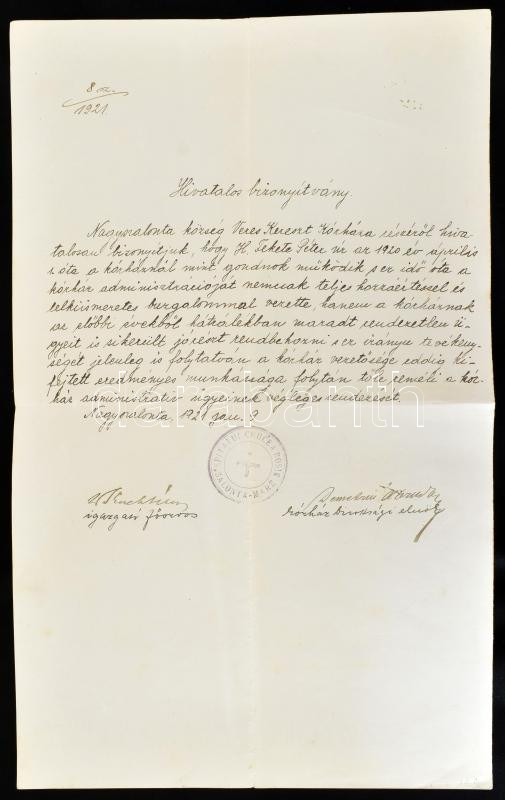 8 sz.
1921.
Hivatalos bizonyítvány.
Nagyszalonta község Veres Kereszt Kórháza részéről hiva-
talosan bizonyítjuk, hogy H. Fekete Péter úr az 1920 év április
1. óta a kórháznál mint gondnok működik s ez idő óta a
kórház adminisztrációját nemcsak teljes hozzáértéssel és
lelkiismeretes buzgalommal vezette, hanem a kórháznak
az előbbi évekből hátralékban maradt rendezetlen ü-
gyeit is sikerült jórészt rendbehozni s ez irányu tevékeny-
ségét jelenleg is folytatván a kórház vezetősége eddig ki-
fejtett eredményes munkássága folytán tőle reméli a kór-
ház administratív ügyeinek végleges rendezését.
Nagyszalonta 1921 jan. 3.
SPITALUL CRUCEA ROŞIE
SALONTA-MARE
igazgató főorvos
Kórház bizottsági elnök
darabanth